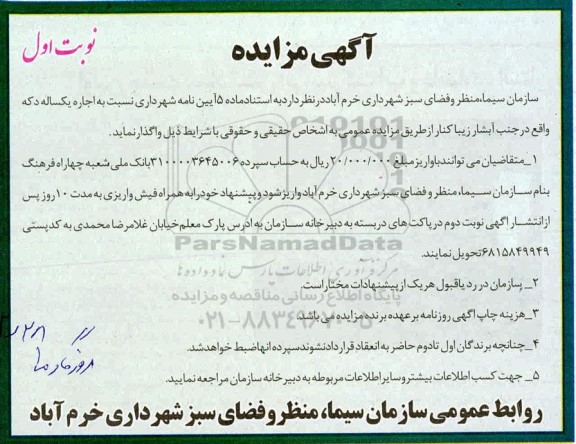 نوبت اول
آگهی مزایده
سازمان سیما، منظر وفضای سبز شهرداری خرم آباد در نظر دارد به استناد ماده ۵ آیین نامه شهرداری نسبت به اجاره یکساله دکه
واقع در جنب آبشار زیبا کنار از طریق مزایده عمومی به اشخاص حقیقی و حقوقی با شرایط ذیل واگذار نماید.
۱_متقاضیان می توانند با واریز مبلغ ۲۰/۰۰۰/۰۰۰ ریال به حساب سپرده ۳۱۰۰۰۰۳۶۴۵۰۰۶ بانک ملی شعبه چهاراه فرهنگ
بنام سازمان سیما، منظر و فضای سبز شهرداری خرم آباد واریز شود و پیشنهاد خود را به همراه فیش واریزی به مدت ۱۰ روز پس
از انتشار اگهی نوبت دوم در پاکت های دربسته به دبیرخانه سازمان به آدرس پارک معلم خیابان غلامرضا محمدی به کدپستی
۶۸۱۵۸۴۹۹۴۹ تحویل نمایند.
ParsNamadData
مرکز فرآوری اطلاعات پارس نماد داده ها
۲_ سازمان در رد یا قبول هر یک از پیشنهادات مختار است.
پایگاه اطلاع رسانی مناقصه و مزایده
۳_هزینه چاپ اگهی روزنامه بر عهده برنده مزایده می باشد.
۰۲۱-۸۸۳۴۹۶۷۰
۴_چنانچه برندگان اول تا دوم حاضر به انعقاد قرار داد نشوند سپرده انها ضبط خواهد شد.
۵_ جهت کسب اطلاعات بیشتر و سایر اطلاعات مربوطه به دبیرخانه سازمان مراجعه نمایید.
روابط عمومی سازمان سیما، منظر و فضای سبز شهرداری خرم آباد